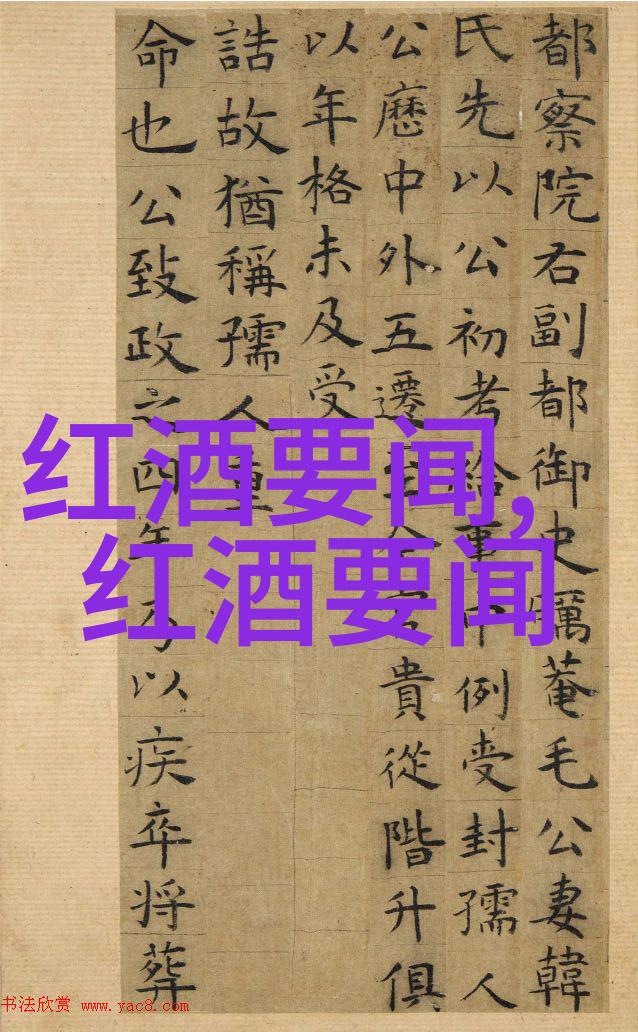 都察院右副都御史礪菴毛公妻韓
氏先以公初考給事中例受封孺人
公歷中外五遷至今官貴從階升俱
以年格未及受
誥故猶稱孺人重
命也公致政之四年乃以疾卒將葬
红酒要闻,
红酒要闻
书法欣赏 www.yac8.com